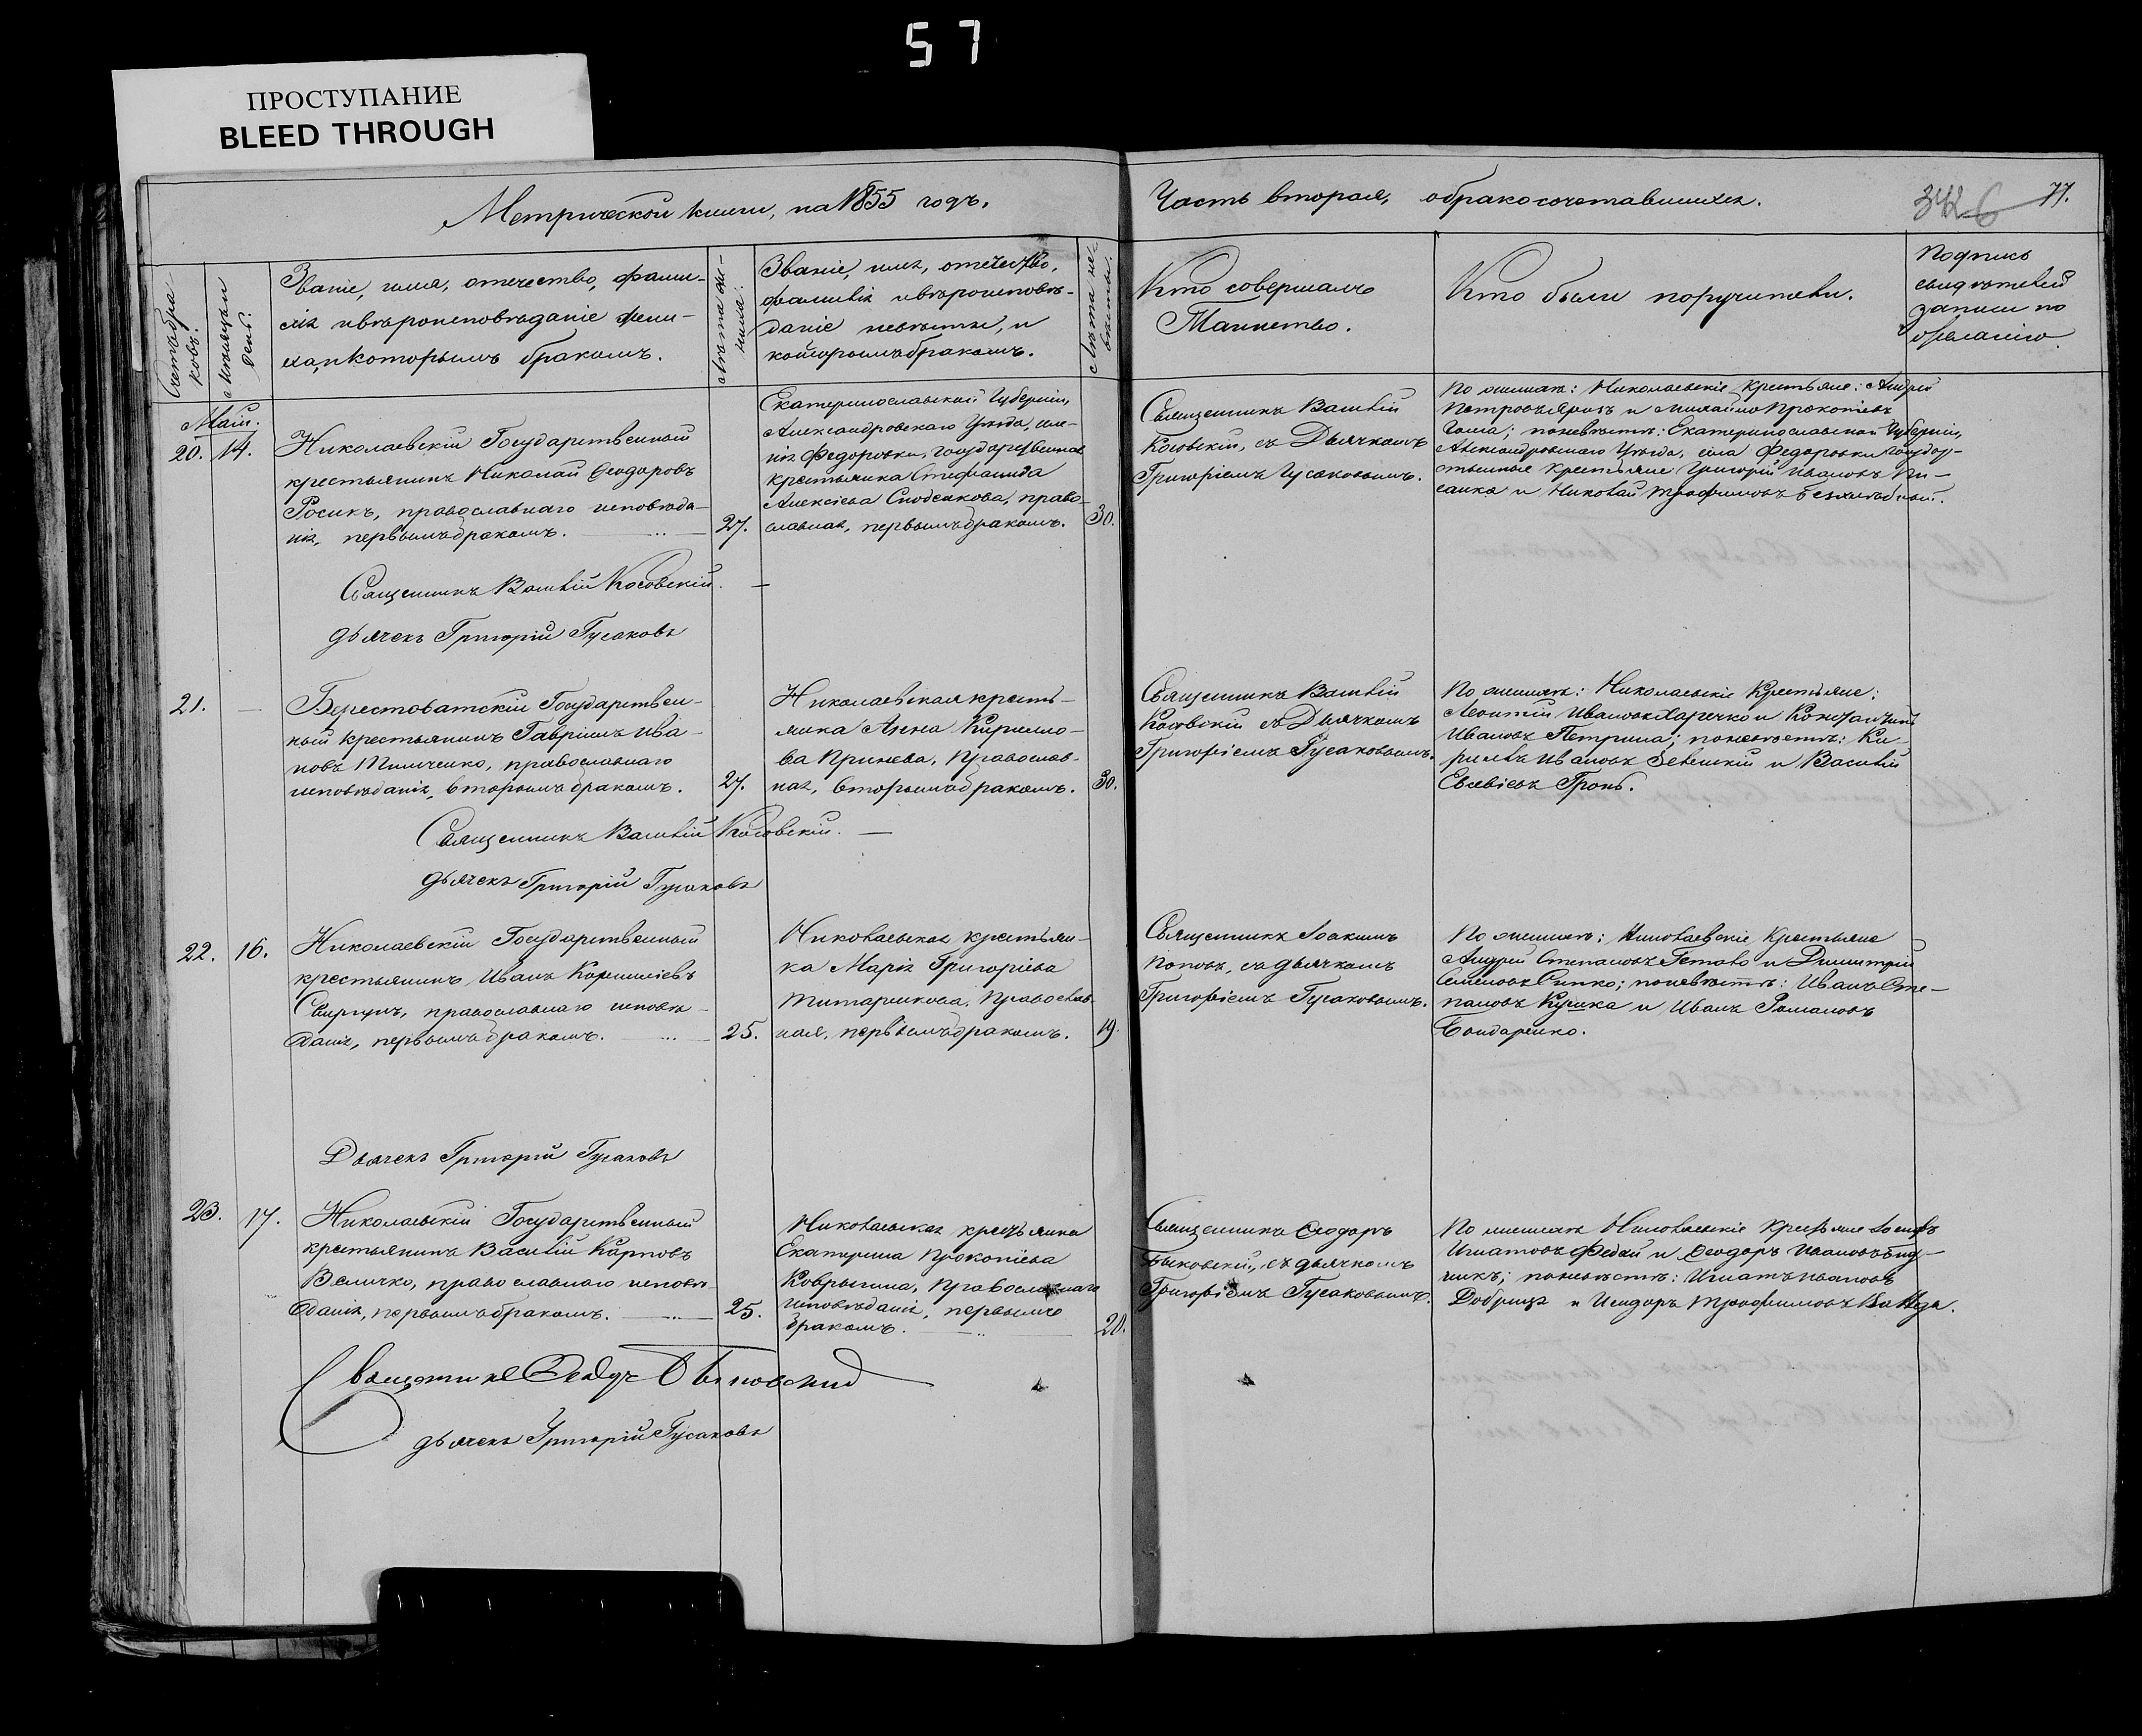 57
ПРОСТУПАНИЕ
BLEED THROUGH
Метрической книги, на 1855 годъ.
Часть вторая, о бракосочетавшихся.
342
6
77.
Счетъ бра-
ковъ.
Мѣсяцъ и
день.
Званіе, имя, отечество, фами-
лія и вѣроисповѣданіе жени-
ха, и которымъ бракомъ.
Лѣта же-
ниха.
Званіе, имя, отечество,
фамилія и вѣроисповѣ-
даніе невѣсты, и
которымъ бракомъ.
Лѣта не-
вѣсты.
Кто совершалъ
Таинство.
Кто были поручители.
Подпись
свидѣтелей
записи по
желанію.
Маій.
20. 14.
Николаевскій Государственный
крестьянинъ Николай Ѳеодоровъ
Росикъ, православнаго исповѣда-
нія, первымъ бракомъ.
27.
Екатеринославской Губерніи,
Александровскаго Уѣзда, се-
ла Федоровки, государственная
крестьянка Стефанида
Алексіева, право-
славная, первымъ бракомъ.
30.
Священникъ Василій
Косовскій, съ Дьячкомъ
Григоріемъ Гусаковымъ.
По женихѣ: Николаевскіе Крестьяне: Андрей
Петровъ и Михайло Прокопіевъ
по невѣстѣ: Екатеринославской Губерніи,
Александровскаго Уѣзда, села Федоровки Государ-
ственные Крестьяне Григорій Ивановъ Пи-
санка и Николай Трофимовъ
Священникъ Василій Косовскій.
дьячекъ Григорій Гусаковъ
21.
Берестоватскій Государствен-
ный крестьянинъ Гавріилъ Ива-
новъ Тимченко, православнаго
исповѣданія, вторымъ бракомъ.
27.
Николаевская кресть-
янка Анна Кирилло-
ва Принева, Православ-
ная, вторымъ бракомъ.
30.
Священникъ Василій
Косовскій съ Дьячкомъ
Григоріемъ Гусаковымъ.
По женихѣ: Николаевскіе Крестьяне:
Леонтій Ивановъ Харечко и Константинъ
Ивановъ Петрина; по невѣстѣ: Ки-
рилъ Ивановъ Зеленскій и Василій
Евсевіевъ Гронь.
Священникъ Василій Косовскій.
дьячекъ Григорій Гусаковъ
22. 16.
Николаевскій Государственный
крестьянинъ Иванъ Корниліевъ
Свиргунъ, православнаго исповѣ-
данія, первымъ бракомъ.
25.
Николаевская крестьян-
ка Марія Григоріева
Титаренкова, Православ-
ная, первымъ бракомъ.
19.
Священникъ Іоакимъ
Поповъ, съ дьячкомъ
Григоріемъ Гусаковымъ.
По женихѣ: Николаевскіе Крестьяне
Андрей Степановъ Гетало и Димитрій
Семеновъ Сипко; по невѣстѣ: Иванъ Сте-
пановъ Кушка и Иванъ Романовъ
Бондаренко.
Дьячекъ Григорій Гусаковъ
23. 17.
Николаевскій Государственный
крестьянинъ Василій Карповъ
Величко, православнаго исповѣ-
данія, первымъ бракомъ.
25.
Николаевская крестьянка
Екатерина Прокопіева
Коврыгина, Православнаго
исповѣданія, первымъ
бракомъ.
20.
Священникъ Ѳеодоръ
Быковскій, съ дьячкомъ
Григоріемъ Гусаковымъ.
По женихѣ Николаевскіе Крестьяне Іосифъ
Игнатовъ Федай и Ѳеодоръ Ивановъ
по невѣстѣ: Игнатъ Ивановъ
Добрица и Исидоръ Трофимовъ
Священникъ Ѳеодоръ Быковскій
дьячекъ Григорій Гусаковъ